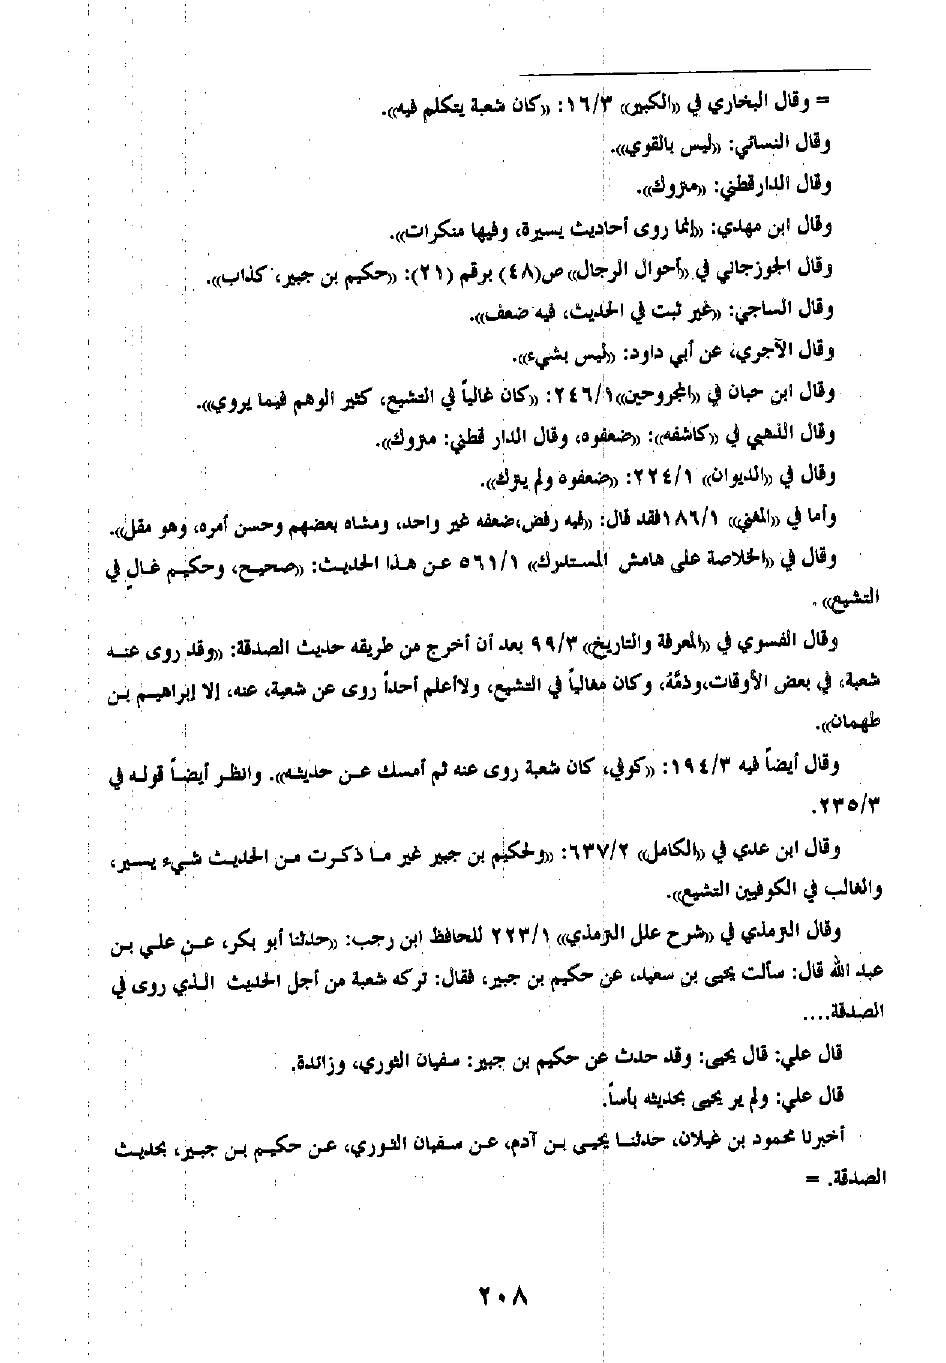 = وقال البخاري في «الكبير» ١٦/٣: «كان شعبة يتكلم فيه».
وقال النسائي: «ليس بالقوي».
وقال الدارقطني: «متروك».
وقال ابن مهدي: «إنما روى أحاديث يسيرة، وفيها منكرات».
وقال الجوزجاني في «أحوال الرجال» ص(٤٨) برقم (٢١): «حكيم بن جبير، كذاب».
وقال الساجي: «غير ثبت في الحديث، فيه ضعف».
وقال الآجري، عن أبي داود: «ليس بشيء».
وقال ابن حبان في «المجروحين»٢٤٦/١: «كان غالياً في التشيع، كثير الوهم فيما يروي».
وقال الذهبي في «كاشفه»: «ضعفوه، وقال الدار قطني: متروك».
وقال في «الديوان» ٢٢٤/١: «ضعفوه ولم يترك».
وأما في «المغني» ١٨٦/١فقد قال: «فيه رفض،ضعفه غير واحد، ومشاه بعضهم وحسن أمره، وهو مقل».
وقال في «الخلاصة على هامش المستدرك» ٥٦١/١ عن هذا الحديث: «صحيح، وحكيم غالٍ في
التشيع».
وقال الفسوي في «المعرفة والتاريخ» ٩٩/٣ بعد أن أخرج من طريقه حديث الصدقة: «وقد روى عنه
شعبة، في بعض الأوقات،وذمَّهُ، وكان مغالياً في التشيع، ولاأعلم أحداً روى عن شعبة، عنه، إلا إبراهيم بن
طهمان».
وقال أيضاً فيه ١٩٤/٣: «كوفي، كان شعبة روى عنه ثم أمسك عن حديثه». وانظر أيضاً قوله في
٢٣٥/٣.
وقال ابن عدي في «الكامل» ٦٣٧/٢: «ولحكيم بن جبير غير ما ذكرت من الحديث شيء يسير،
والغالب في الكوفيين التشيع».
وقال الترمذي في «شرح علل الترمذي» ٢٢٣/١ للحافظ ابن رجب: «حدثنا أبو بكر، عن علي بن
عبد الله قال: سألت يحيى بن سعيد، عن حكيم بن جبير، فقال: تركه شعبة من أجل الحديث الذي روى في
الصدقة....
قال علي: قال يحيى: وقد حدث عن حكيم بن جبير: سفيان الثوري، وزائدة.
قال علي: ولم ير يحيى بحديثه بأساً.
أخبرنا محمود بن غيلان، حدثنا يحيى بن آدم، عن سفيان الثوري، عن حكيم بن جبير، بحديث
الصدقة. =
٢٠٨